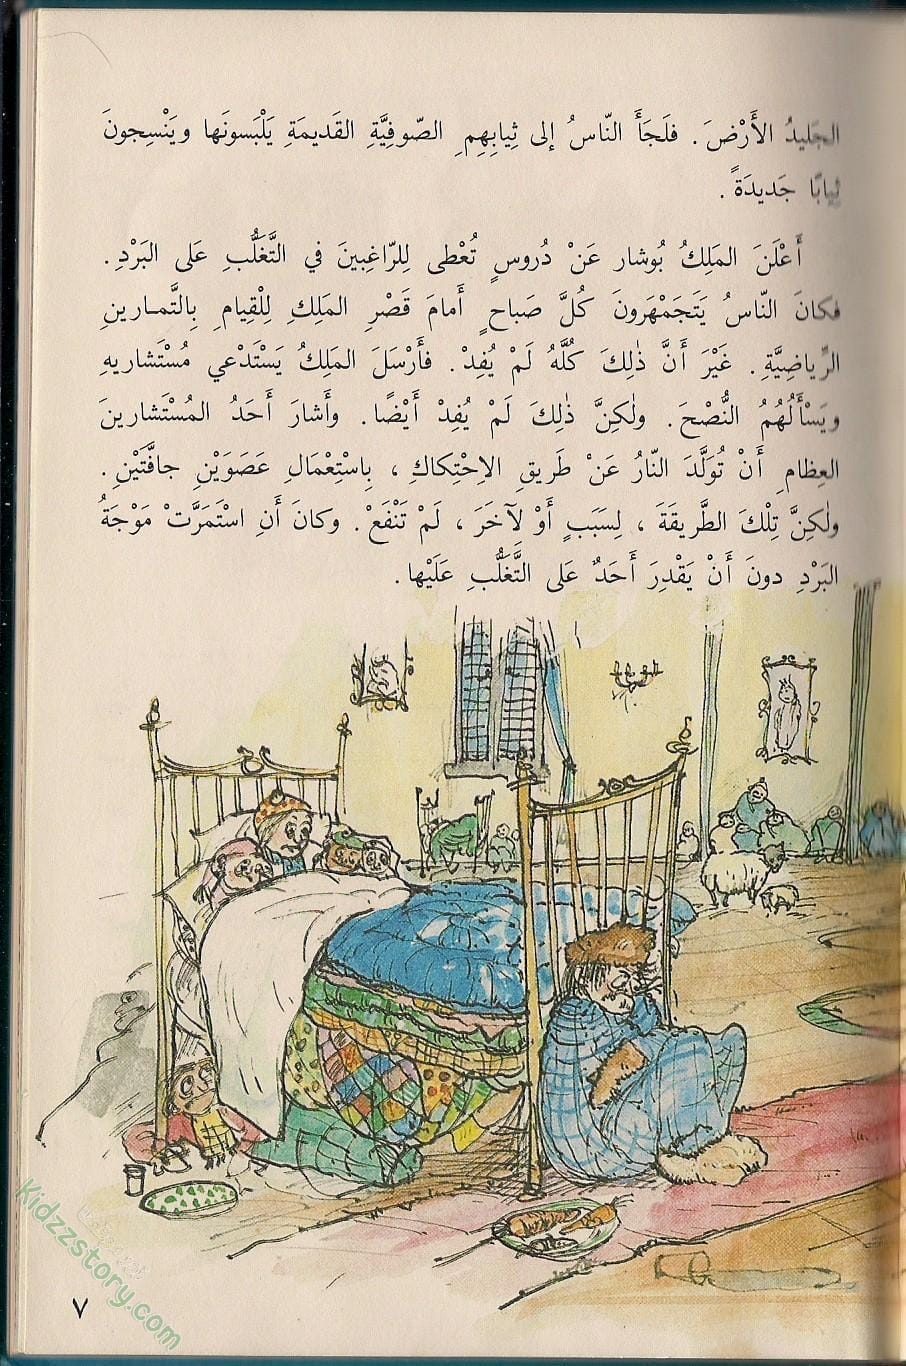 الجَليدُ الأَرْضَ. فلَجَأَ النّاسُ إلى ثِيابِهِمِ الصّوفِيَّةِ القَديمَةِ يَلْبَسونَها ويَنْسِجونَ
ثِيابًا جَديدَةً.
أَعْلَنَ المَلِكُ بُوشار عَنْ دُروسٍ تُعْطى لِلرّاغِبينَ في التَّغَلُّبِ عَلى البَرْدِ.
فكانَ النّاسُ يَتَجَمْهَرونَ كُلَّ صَباحٍ أَمامَ قَصْرِ المَلِكِ لِلْقِيامِ بِالتَّمارينِ
الرِّياضِيَّةِ. غَيْرَ أَنَّ ذٰلِكَ كُلَّهُ لَمْ يُفِدْ. فأَرْسَلَ المَلِكُ يَسْتَدْعي مُسْتَشاريهِ
ويَسْأَلُهُمُ النُّصْحَ. ولٰكِنَّ ذٰلِكَ لَمْ يُفِدْ أَيْضًا. وأَشارَ أَحَدُ المُسْتَشارينَ
العِظامِ أَنْ تُوَلَّدَ النّارُ عَنْ طَريقِ الاِحْتِكاكِ، بِاسْتِعْمالِ عَصَوَيْنِ جافَّتَيْنِ.
ولٰكِنَّ تِلْكَ الطَّريقَةَ، لِسَبَبٍ أَوْ لآخَرَ، لَمْ تَنْفَعْ. وكانَ أَنِ اسْتَمَرَّتْ مَوْجَةُ
البَرْدِ دونَ أَنْ يَقْدِرَ أَحَدٌ عَلى التَّغَلُّبِ عَلَيْها.
Kidzzstory.com
٧